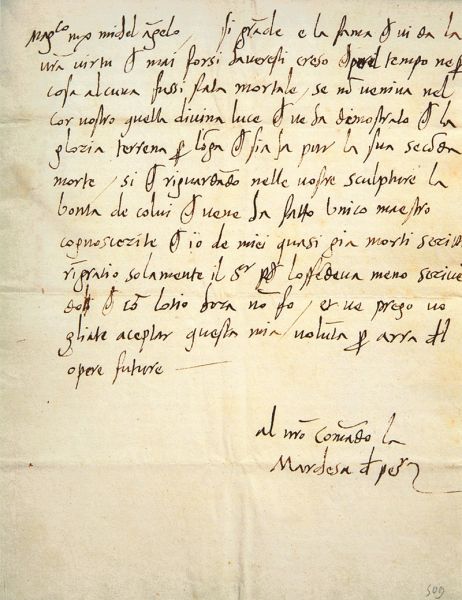 Mag.co m.o michel āgelo, si grāde e la fama ꝗ vi da la
vr̄a virtu ꝗ mai forsi haveresti creso ꝗ per tempo ne per
cosa alcuna fussi stata mortale, se nō veniva nel
cor vostro quella divina luce ꝗ ve ha demostrato ꝗ la
gloria terrena per lōga ꝗ sia ha pur la sua secōda
morte, si ꝗ riguardādo nelle vostre sculpture la
bonta de colui ꝗ vene ha fatto unico maestro
cognoscerite ꝗ io de miei quasi gia morti scritti
rīgratio solamente il Sr perꝗ lo offedeva meno scrivē
doli ꝗ cō lotio hora nō fo, et ve prego vo
gliate aceptar questa mia volūta per arra del
opere future
al vr̄o comādo la
Marchesa de pesr
509